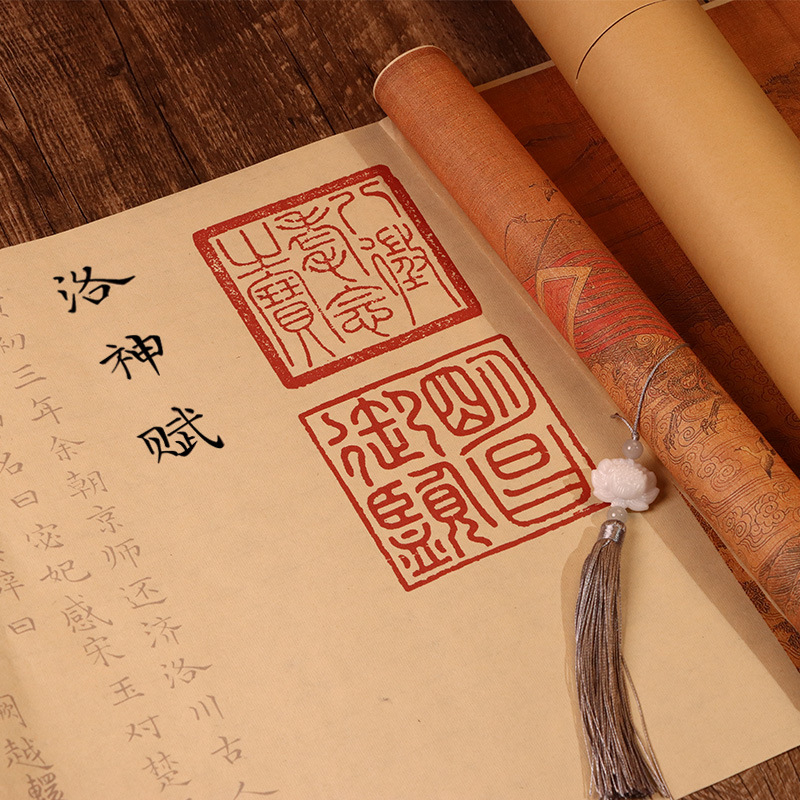 八徵耄念之寶
明昌御覽
洛神赋
初三年余朝京师还济洛川古人
名曰宓妃感宋玉对楚
辞曰
越轘